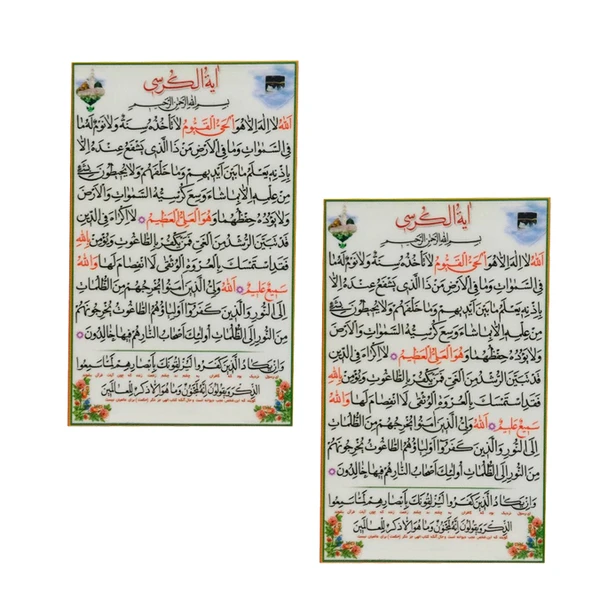 آیة الکرسی
بِسْمِ اللهِ الرَّحْمٰنِ الرَّحیمِ
اَللهُ لا اِلهَ اِلاّ هُوَ الْحَیُّ الْقَیُّومُ لا تَأْخُذُهُ سِنَةٌ وَلا نَوْمٌ لَهُ ما
فِی السَّمواتِ وَما فِی الاَرْضِ مَنْ ذَا الَّذی یَشْفَعُ عِنْدَهُ اِلاّ
بِاِذْنِهِ یَعْلَمُ ما بَیْنَ اَیْدیهِمْ وَما خَلْفَهُمْ وَلا یُحیطُونَ بِشَیْءٍ
مِنْ عِلْمِهِ اِلاّ بِما شاءَ وَسِعَ کُرْسِیُّهُ السَّمواتِ وَالاَرْضَ
وَلا یَؤُدُهُ حِفْظُهُما وَهُوَ الْعَلِیُّ الْعَظیمُ لا اِکْراهَ فِی الدّینِ
قَدْ تَبَیَّنَ الرُّشْدُ مِنَ الْغَیِّ فَمَنْ یَکْفُرْ بِالطّاغُوتِ وَیُؤْمِنْ بِاللهِ
فَقَدِ اسْتَمْسَکَ بِالْعُرْوَةِ الْوُثْقی لاَ انْفِصامَ لَها وَاللهُ
سَمیعٌ عَلیمٌ اَللهُ وَلِیُّ الَّذینَ آمَنُوا یُخْرِجُهُمْ مِنَ الظُّلُماتِ
اِلَی النُّورِ وَالَّذینَ کَفَرُوا اَوْلِیاؤُهُمُ الطّاغُوتُ یُخْرِجُونَهُمْ
مِنَ النُّورِ اِلَی الظُّلُماتِ اُولئِکَ اَصْحابُ النّارِ هُمْ فیها خالِدُونَ
وَاِنْ یَکادُ الَّذینَ کَفَرُوا لَیُزْلِقُونَکَ بِاَبْصارِهِمْ لَمّا سَمِعُوا
الذِّکْرَ وَیَقُولُونَ اِنَّهُ لَمَجْنُونٌ وَما هُوَ اِلاّ ذِکْرٌ لِلْعالَمینَ
آیة الکرسی
بِسْمِ اللهِ الرَّحْمٰنِ الرَّحیمِ
اَللهُ لا اِلهَ اِلاّ هُوَ الْحَیُّ الْقَیُّومُ لا تَأْخُذُهُ سِنَةٌ وَلا نَوْمٌ لَهُ ما
فِی السَّمواتِ وَما فِی الاَرْضِ مَنْ ذَا الَّذی یَشْفَعُ عِنْدَهُ اِلاّ
بِاِذْنِهِ یَعْلَمُ ما بَیْنَ اَیْدیهِمْ وَما خَلْفَهُمْ وَلا یُحیطُونَ بِشَیْءٍ
مِنْ عِلْمِهِ اِلاّ بِما شاءَ وَسِعَ کُرْسِیُّهُ السَّمواتِ وَالاَرْضَ
وَلا یَؤُدُهُ حِفْظُهُما وَهُوَ الْعَلِیُّ الْعَظیمُ لا اِکْراهَ فِی الدّینِ
قَدْ تَبَیَّنَ الرُّشْدُ مِنَ الْغَیِّ فَمَنْ یَکْفُرْ بِالطّاغُوتِ وَیُؤْمِنْ بِاللهِ
فَقَدِ اسْتَمْسَکَ بِالْعُرْوَةِ الْوُثْقی لاَ انْفِصامَ لَها وَاللهُ
سَمیعٌ عَلیمٌ اَللهُ وَلِیُّ الَّذینَ آمَنُوا یُخْرِجُهُمْ مِنَ الظُّلُماتِ
اِلَی النُّورِ وَالَّذینَ کَفَرُوا اَوْلِیاؤُهُمُ الطّاغُوتُ یُخْرِجُونَهُمْ
مِنَ النُّورِ اِلَی الظُّلُماتِ اُولئِکَ اَصْحابُ النّارِ هُمْ فیها خالِدُونَ
وَاِنْ یَکادُ الَّذینَ کَفَرُوا لَیُزْلِقُونَکَ بِاَبْصارِهِمْ لَمّا سَمِعُوا
الذِّکْرَ وَیَقُولُونَ اِنَّهُ لَمَجْنُونٌ وَما هُوَ اِلاّ ذِکْرٌ لِلْعالَمینَ